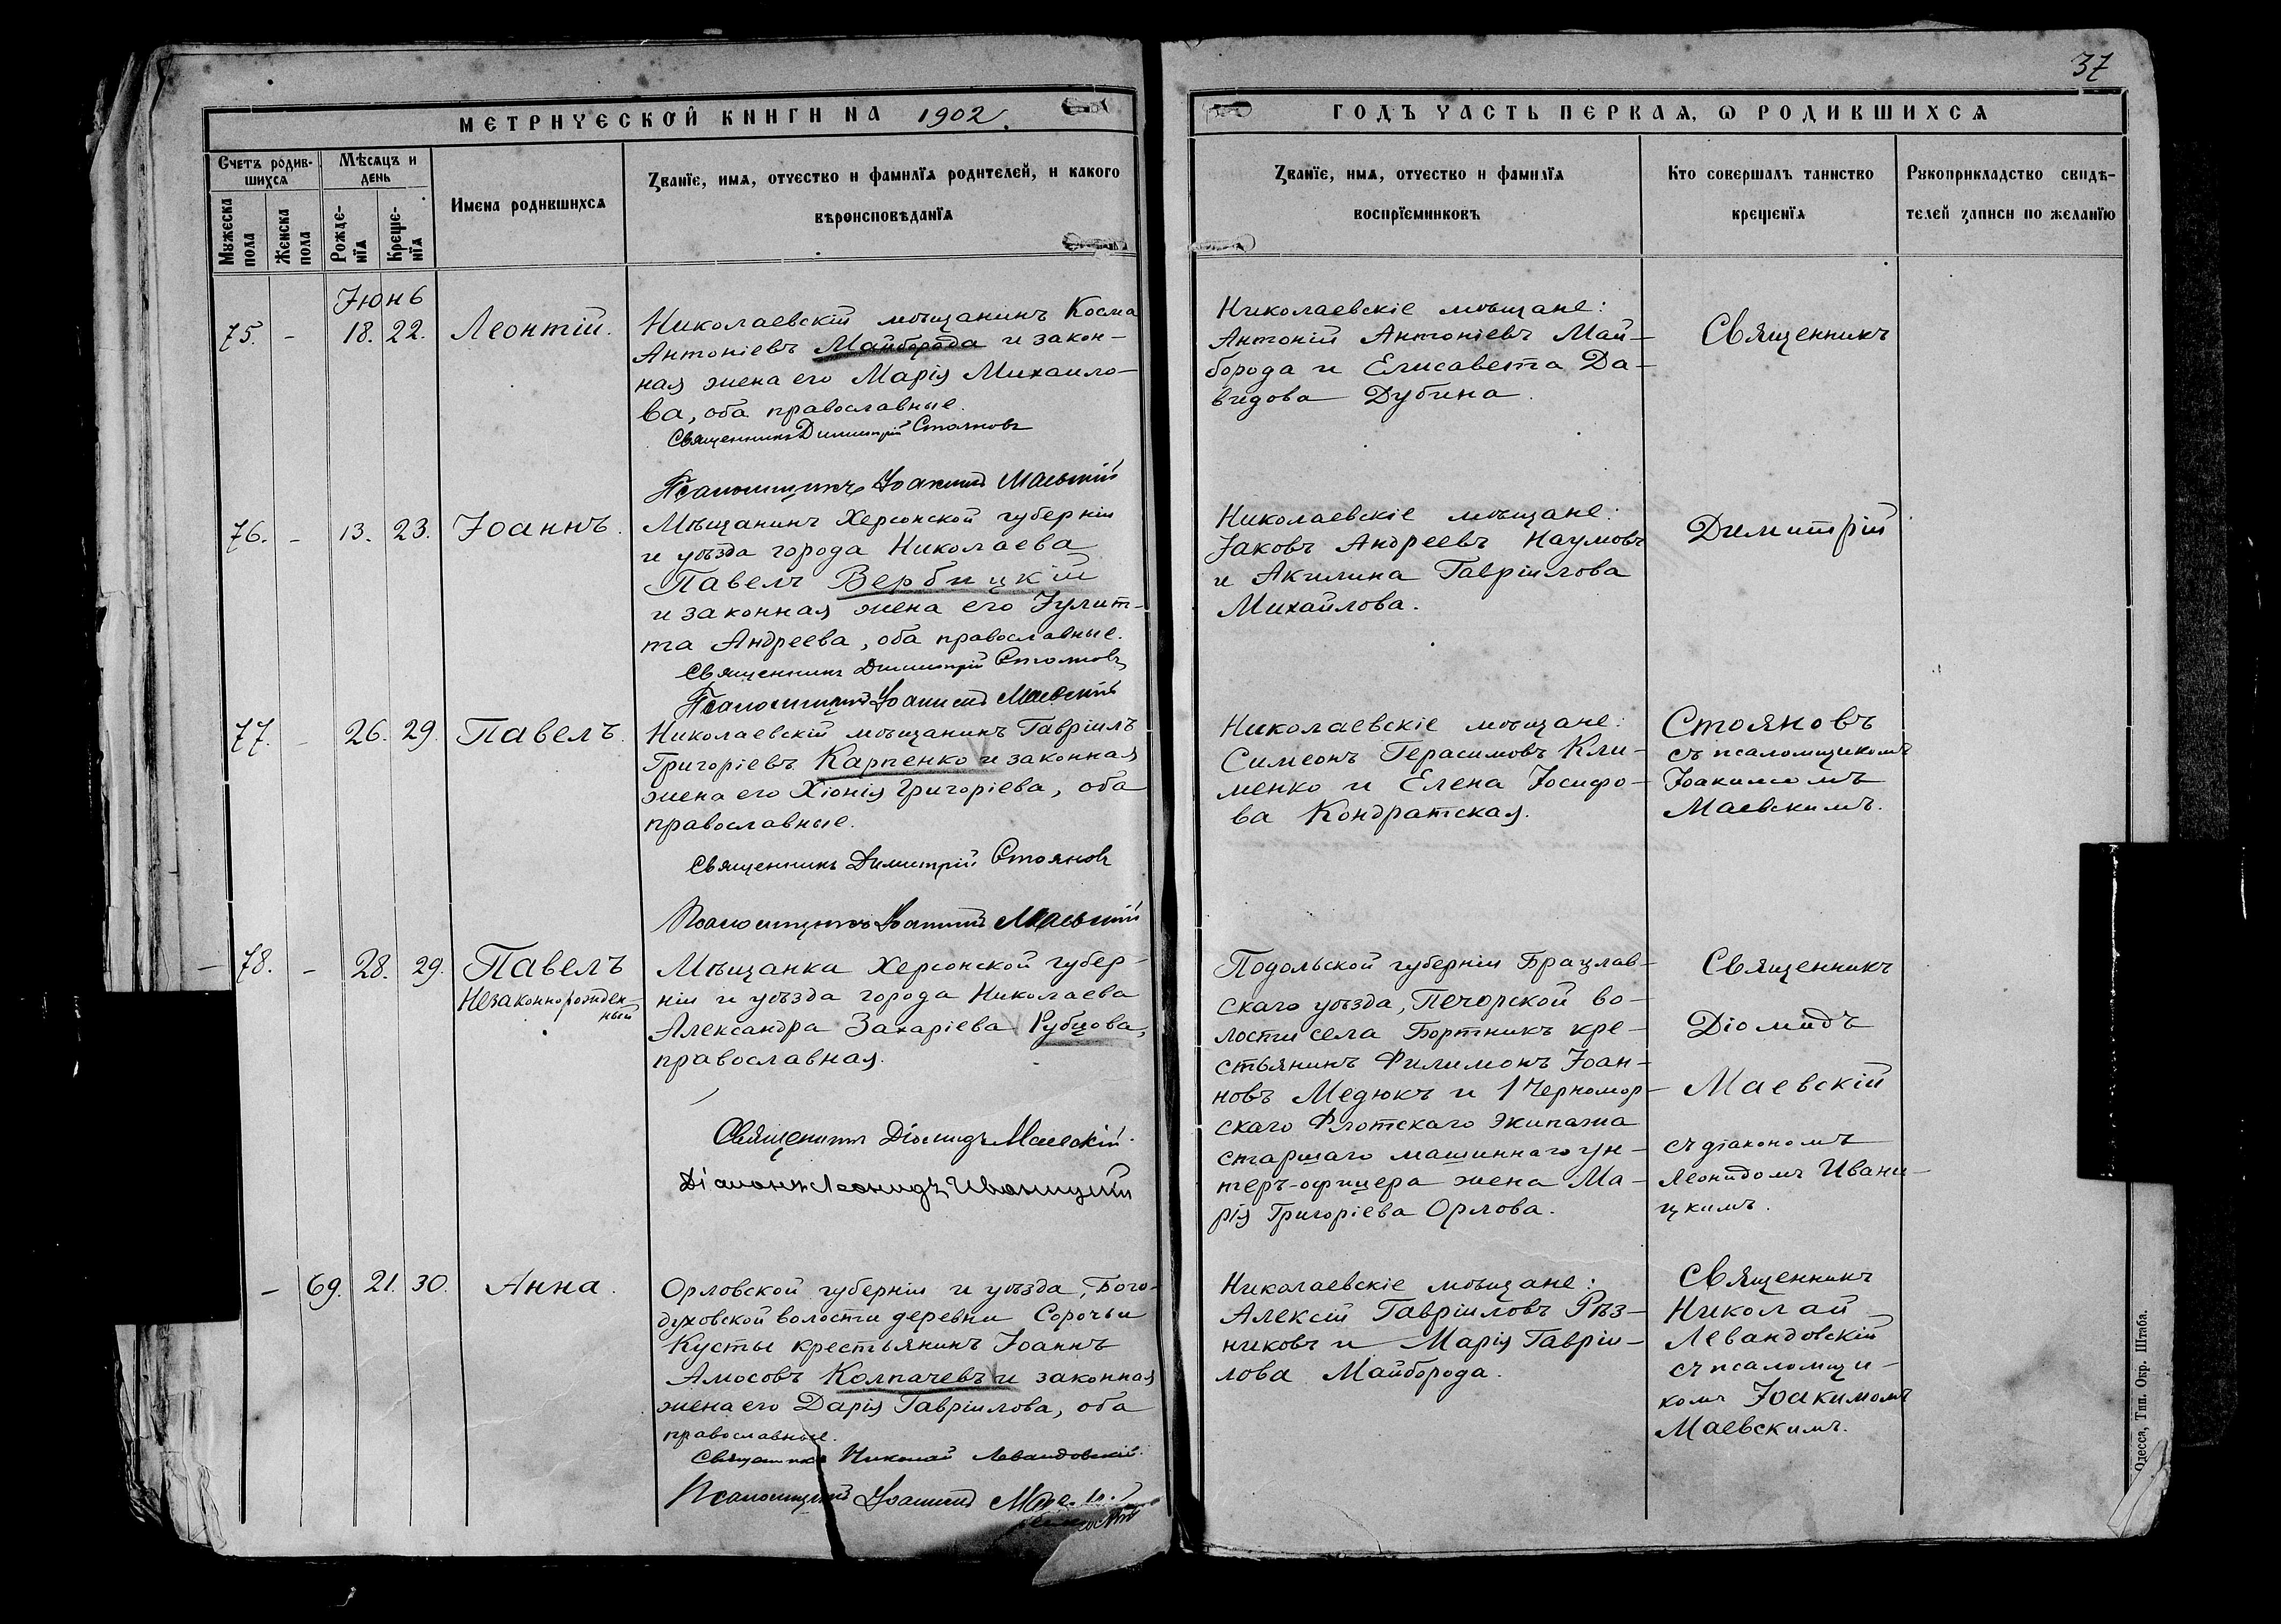 37
МЕТРИЧЕСКОЙ КНИГИ НА 1902.
ГОДЪ ЧАСТЬ ПЕРВАЯ, Ѡ РОДИВШИХСЯ
Счетъ родив-
шихся
Мѣсяцъ и
день
Имена родившихся
Званїе, имя, отчество и фамилїя родителей, и какого
вѣроисповѣданїя
Мужеска
пола
Женска
пола
Рожде-
нїя
Креще-
нїя
Званїе, имя, отчество и фамилїя
воспрїемниковъ
Кто совершалъ таинство
крещенїя
Рукоприкладство свидѣ-
телей записи по желанїю
Іюнь
75. - 18. 22. Леонтій.
Николаевскій мѣщанинъ Косма
Антоніевъ Майборода и закон-
ная жена его Марія Михаило-
ва, оба православные.
Священникъ Димитрій Стояновъ
Псаломщикъ Іоакимъ Маевскій
Николаевскіе мѣщане:
Антоній Антоніевъ Май-
борода и Елисавета Да-
видова Дубина.
Священникъ
76. - 13. 23. Іоаннъ.
Мѣщанинъ Херсонской губерніи
и уѣзда города Николаева
Павелъ Вербицкій
и законная жена его Іулит-
та Андреева, оба православные.
Священникъ Димитрій Стояновъ
Псаломщикъ Іоакимъ Маевскій
Николаевскіе мѣщане:
Іаковъ Андреевъ Наумовъ
и Акилина Гавріилова
Михайлова.
Димитрій
77. - 26. 29. Павелъ.
Николаевскій мѣщанинъ Гавріилъ
Григоріевъ Карпенко и законная
жена его Хіонія Григоріева, оба
православные.
Священникъ Димитрій Стояновъ
Псаломщикъ Іоакимъ Маевскій
Николаевскіе мѣщане:
Симеонъ Герасимовъ Кли-
менко и Елена Іосифо-
ва Кондратская.
Стояновъ
съ псаломщикомъ
Іоакимомъ
Маевскимъ.
78. - 28. 29. Павелъ
Незаконнорожден-
ный
Мѣщанка Херсонской губер-
ніи и уѣзда города Николаева
Александра Захаріева Рубцова,
православная.
Священникъ Діомидъ Маевскій.
Діаконъ Леонидъ Иваницкій
Подольской губерніи Брацлав-
скаго уѣзда, Печорской во-
лости села Бортникъ кре-
стьянинъ Филимонъ Іоан-
новъ Медюкъ и 1 Черномор-
скаго Флотскаго Экипажа
старшаго машиннаго ун-
теръ-офицера жена Ма-
рія Григоріева Орлова.
Священникъ
Діомидъ
Маевскій
съ діакономъ
Леонидомъ Ивани-
цкимъ.
- 69. 21. 30. Анна.
Орловской губерніи и уѣзда, Бого-
духовской волости деревни Сорочьи
Кусты крестьянинъ Іоаннъ
Амосовъ Колпачевъ и законная
жена его Дарія Гавріилова, оба
православные.
Священникъ Николай Левандовскій.
Псаломщикъ Іоакимъ
Николаевскіе мѣщане:
Алексій Гавріиловъ Рѣз-
никовъ и Марія Гавріи-
лова Майборода.
Священникъ
Николай
Левандовскій
съ псаломщи-
комъ Іоакимомъ
Маевскимъ.
Одесса, Тип. Окр. Штаба.